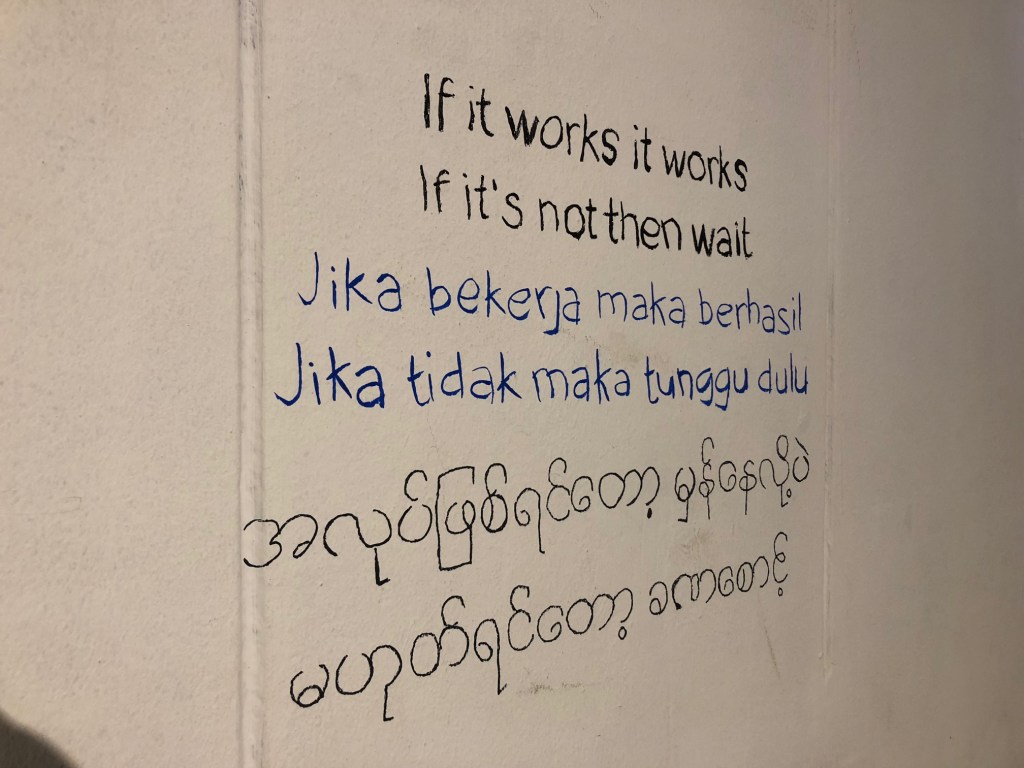 If it works it works
If it's not then wait
Jika bekerja maka berhasil
Jika tidak maka tunggu dulu
အလုပ်ဖြစ်ရင်တော့ မှန်နေလို့ပဲ
မဟုတ်ရင်တော့ ခဏစောင့်